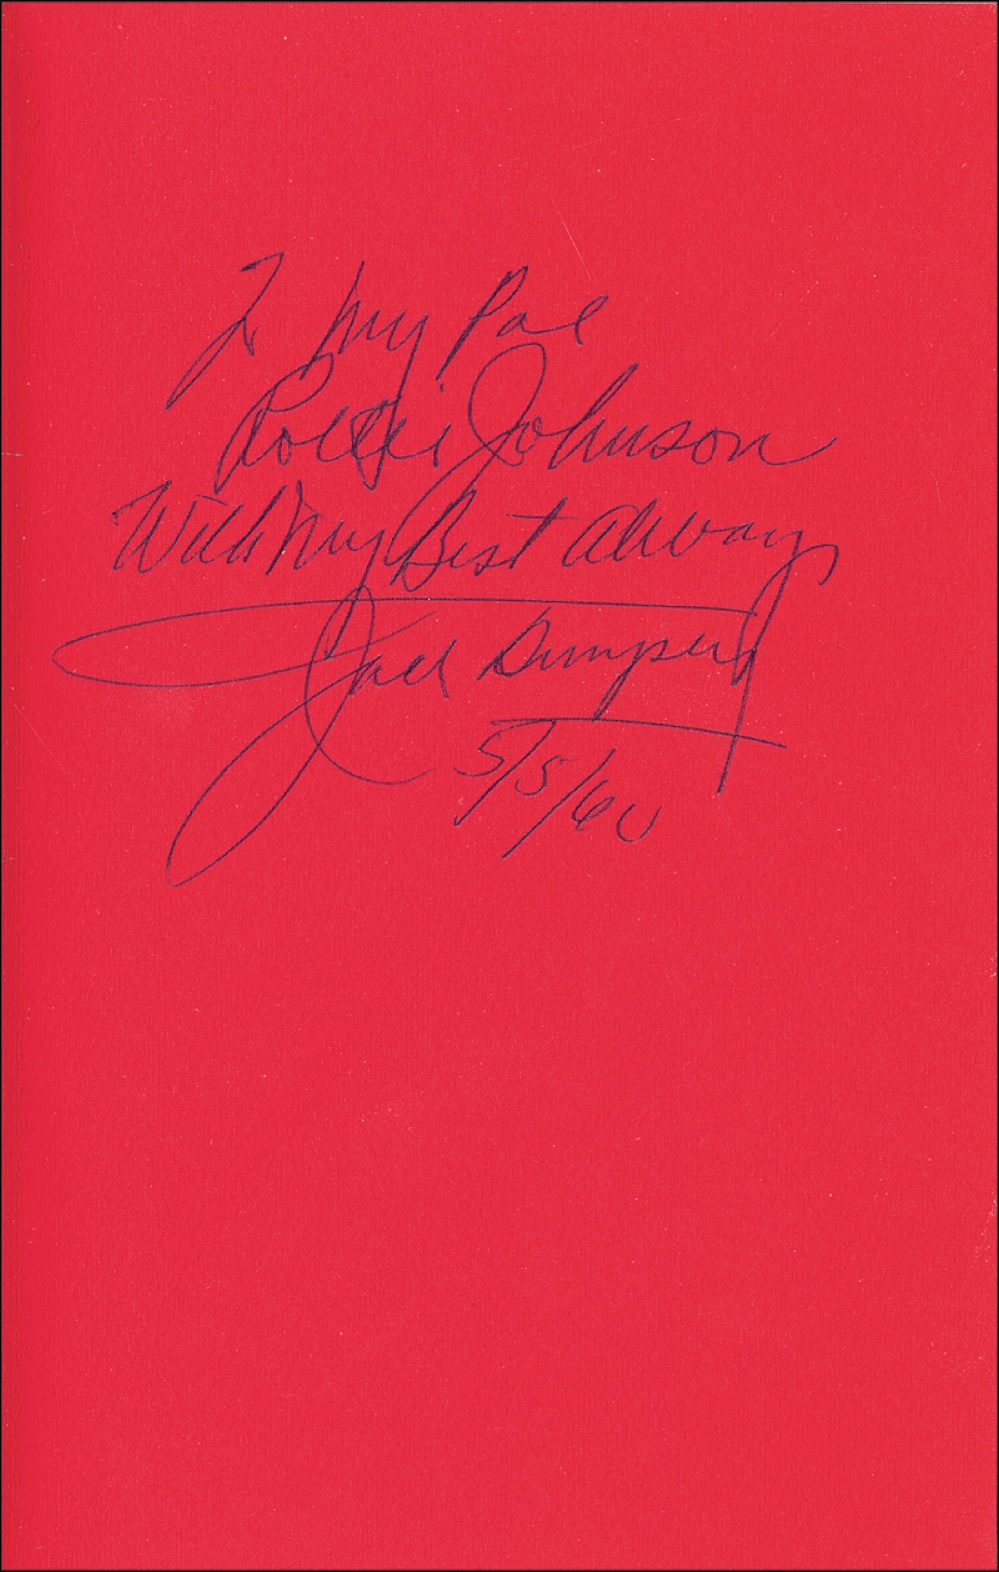 To My Pal
Rollie Johnson
With My Best Always
Jack Dempsey
5/5/60